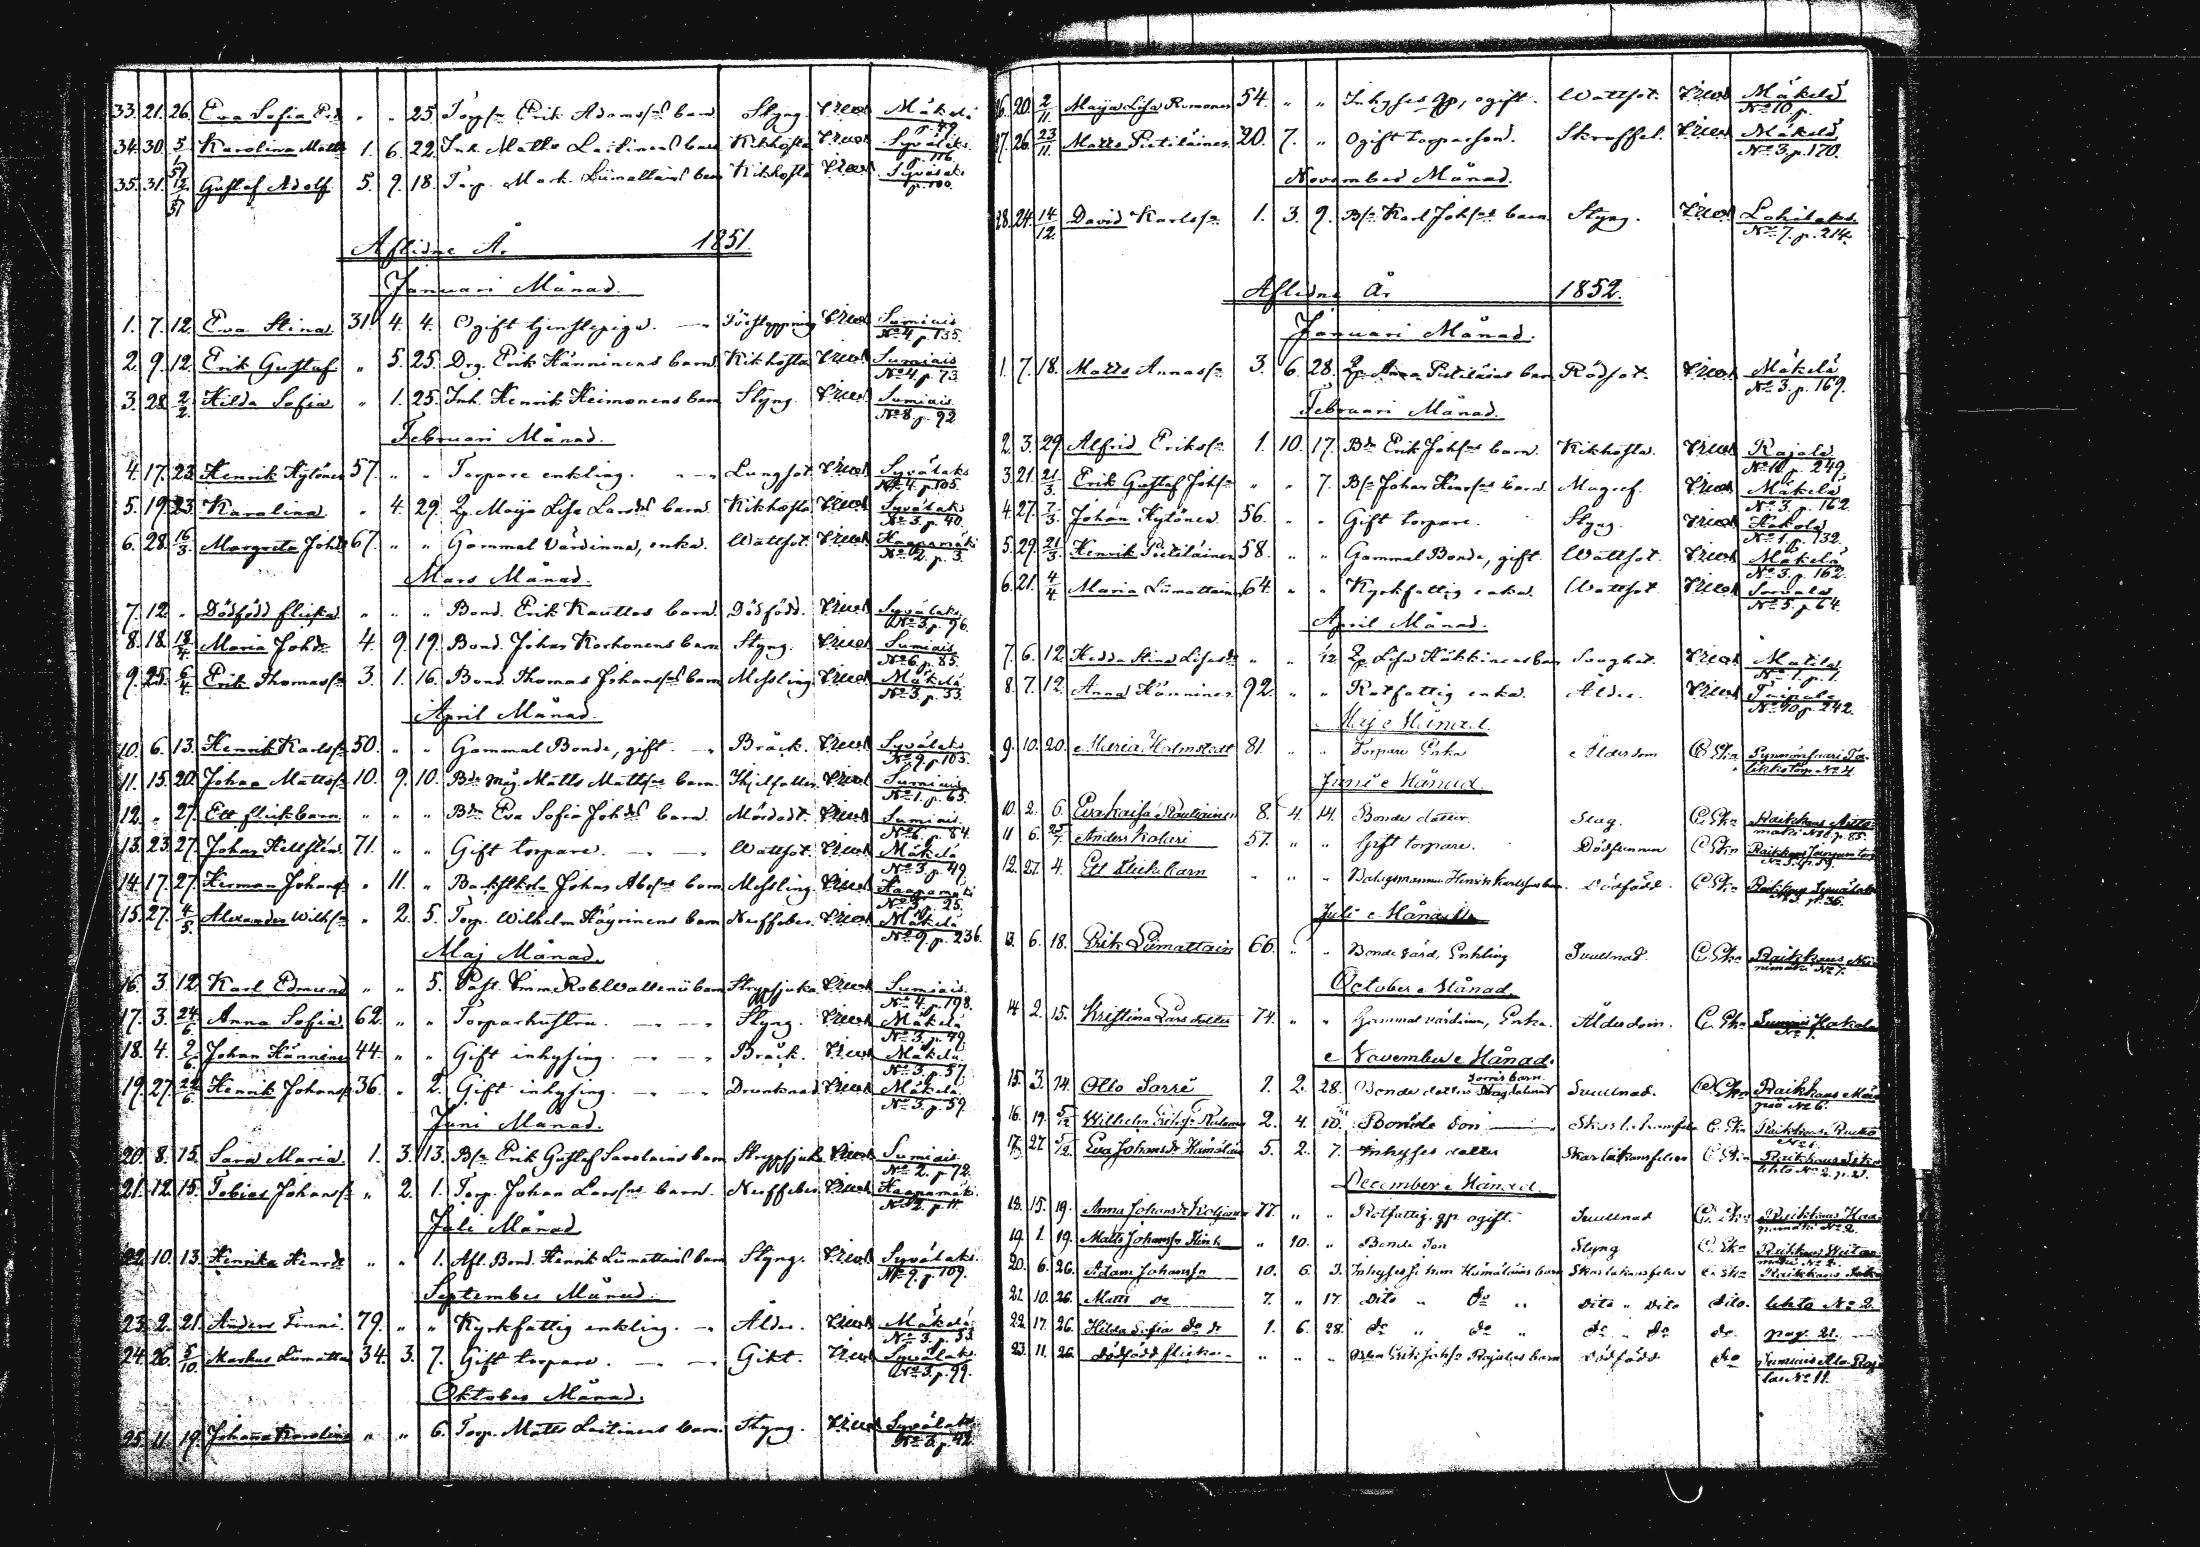 33. 21. 26. Eva Sofia Erd. " " 25. Torpr Erik Adamssns barn Styng. Mäkelä p. 49.
34. 30. 5/1 51 Karolina Matts 1. 6. 22. Inh. Matts Laitinens barn Kikhosta Syvälaks p. 116.
35. 31. 12/1 51 Gustaf Adolf 5. 9. 18. Torp. Mark. Liimattains barn Kikhosta Syvälaks p. 100.
Aflidne År 1851.
Januari Månad.
1. 7. 12. Eva Stina 31. 4. 4. Ogift tjenstepiga. Förstoppning Sumiais No 4. p. 135.
2. 9. 12. Erik Gustaf " 5. 25. Drg. Erik Hänninens barn Kikhosta Sumiais No 4 p. 73.
3. 28. 2/2. Hilda Sofia " 1. 25. Inh. Henrik Heimonens barn Styng. Sumiais No 8 p. 92.
Februari Månad.
4. 17. 23. Henrik Hytönen 57. " " Torpare enkling. Lungsot Syvälaks No 4. p. 105.
5. 19. 23. Karolina " 4. 29. Qp. Maija Lisa Larsds barn Kikhosta Syvälaks No 3. p. 40.
6. 28. 16/3. Margreta Johds 67. " " Gammal Värdinna, enka. Wattsot. Haapamäki No 2. p. 3.
Mars Månad.
7. 12. " Dödfödd flicka " " " Bond. Erik Kauttos barn Dödfödd. Syvälaks No 3. p. 96.
8. 18. 18/4. Maria Johdr 4. 9. 19. Bond. Johan Korhonens barn Styng. Sumiais No 6. p. 85.
9. 25. 6/4. Erik Thomassn 3. 1. 16. Bond. Thomas Johanssns barn Messling Mäkelä No 3. p. 53.
April Månad.
10. 6. 13. Henrik Karlssn 50. " " Gammal Bonde, gift. Bråck. Syvälaks No 9. p. 103.
11. 15. 20. Johan Mattssn 10. 9. 10. Bde måg Matts Mattssns barn. Ihjelfallen Sumiais No 1. p. 65.
12. " 27. Ett flickbarn " " " Bdr. Eva Sofia Johds barn. Mördadt. Sumiais No 6. p. 84.
13. 23. 27. Johan Hellstén 71. " " Gift torpare. Wattsot. Mäkelä No 3. p. 49.
14. 17. 27. Herman Johanss " 11. " Johan barn Messling. Haapamäki No 3. p. 25.
15. 27. 4/5. Alexander Wilhssn " 2. 5. Torp. Wilhelm Häyrinens barn Nerffeber. Mäkelä No 9. p. 236.
Maj Månad.
16. 3. 12. Karl Edmund " " 5. barn Strypsjuka Sumiais. No 4. p. 198.
17. 3. 24/6. Anna Sofia 62. " " Torparhustru. Styng. Mäkelä No 3. p. 49.
18. 4. 2/6. Johan Hänninen 44. " " Gift inhysing. Bråck. Mäkelä No 3. p. 57.
19. 27. 22/6. Henrik Johanss 36. " 2. Gift inhysing. Drunknad Mäkelä No 3. p. 59.
Juni Månad.
20. 8. 15. Sara Maria. 1. 3. 13. Bsn Erik Gustaf Savolains barn Strypsjuka Sumiais No 2. p. 72.
21. 12. 15. Tobias Johanss " 2. 1. Torp. Johan Larssns barn. Nerffeber. Haapamäki. No 2. p. 11.
Juli Månad
22. 10. 13. Henrika Henrdr " " 1. Afl. Bond. Henrik Liimattains barn Styng. Syvälaks. No 9. p. 109.
September Månad.
23. 2. 21. Anders Finni. 79. " " Kyrkfattig enkling. Ålder. Mäkelä No 3. p. 53.
24. 26. 5/10. Markus Liimatta 34. 3. 7. Gift torpare. Gikt. Syvälaks No 3. p. 99.
Oktober Månad.
25. 11. 19. Johanna Karolina " " 6. Torp. Matts Laitinens barn. Styng. Syvälaks No 3. p. 42.
26. 20. 2/11 Maija Lisa Rumonen 54. " " Inhyses qp, ogift. Wattsot. Mäkelä No 10 p.
27. 26. 23/11. Matts Pietiläinen 20. 7. " Ogift torpareson. Skroffel. Mäkelä No 3. p. 170.
November Månad.
28. 24. 14/12. David Karlssn 1. 3. 9. Bsn Karl Johssns barn Styng. Lohilaks. No 7. p. 214.
Aflidne År 1852.
Januari Månad.
1. 7. 18. Matts Annassn 3. 6. 28. Qp Anna Pietiläins barn Rödsot. Mäkelä No 3. p. 169.
Februari Månad.
2. 3. 29. Alfrid Erikssn 1. 10. 17. Bde Erik Johssns barn. Kikhosta. Rajala No 11. p. 249.
3. 21. 21/3. Erik Gustaf Johssn " " 7. Bsn Johan Henrssns barn Magref. Mäkelä No 3. p. 162.
4. 27. 7/3. Johan Hytönen 56. " " Gift torpare. Styng. Hakola No 1. p. 132.
5. 29. 21/3. Henrik Pietiläinen 58. " " Gammal Bonde, gift. Wattsot. Mäkelä No 3. p. 162.
6. 21. 4/4 Maria Liimattain 64. " " Kyrkfattig enka. Wattsot. No 5. p. 64.
April Månad.
7. 6. 12. Hedda Stina Lisasdr " " 1/2 Qp. Lisa Häkkinens barn Svaghet. Matila No 1. p. 1.
8. 7. 12. Anna Hänninen 92. " " Rotfattig enka. Ålder. Taipale No 10 p. 242.
Maj Månad.
9. 10. 20. Maria Holmstedt 81. " " Torpare Enka Ålderdom No 4.
Juni Månad.
10. 2. 6. Eva Kaisa Rautiainen 8. 4. 14. Bonde dotter. Slag. p. 85.
11. 6. 25/7. Anders Kolari 57. " " Gift torpare. Dödfunnen
12. 27. 4. Ett flickebarn " " " Bolagsmannen Henrik Karlssons barn Dödfödd. p. 36.
Juli Månad
13. 6. 18. Erik Liimattain 66. " " Bonde värd, Enkling Svullnad. No 7.
October Månad.
14. 2. 15. Kristina Larsdotter 74. " " Gammal värdinna, Enka. Ålderdom. Sumiais Hakola No 1.
November Månad.
15. 3. 14. Otto Sarré 1. 2. 28. Bonde dotter Magdalenas barn Svullnad. No 6.
16. 19. 5/12 Wilhelm 2. 4. 10. Bonde son
17. 27. 5/12. Eva Johansdr Hämäläin 5. 2. 7. Inhyses dotter Skarlakansfeber No 2. p. 21.
December Månad.
18. 15. 19. Anna Johansdr 77 " " Rotfattig qp ogift. Svullnad No 2.
19. 1. 19. Matts Johanssn " 10. " Bonde Son Styng
20. 6. 26. Adam Johanssn 10. 6. 3. Inhyses Johan Hämäläins barn Skarlakansfeber
21. 10. 26. Matts do 7. " 17. Dito " do " dito " dito dito. lehto No 2.
22. 17. 26. Hilda Sofia do dr 1. 6. 28. do " do " do " do do. pag. 21.
23. 11. 26. dödfödd flicka " " " Erik Johssn Rajalas barn dödfödd do Sumiais Ala Rajalas No 11.